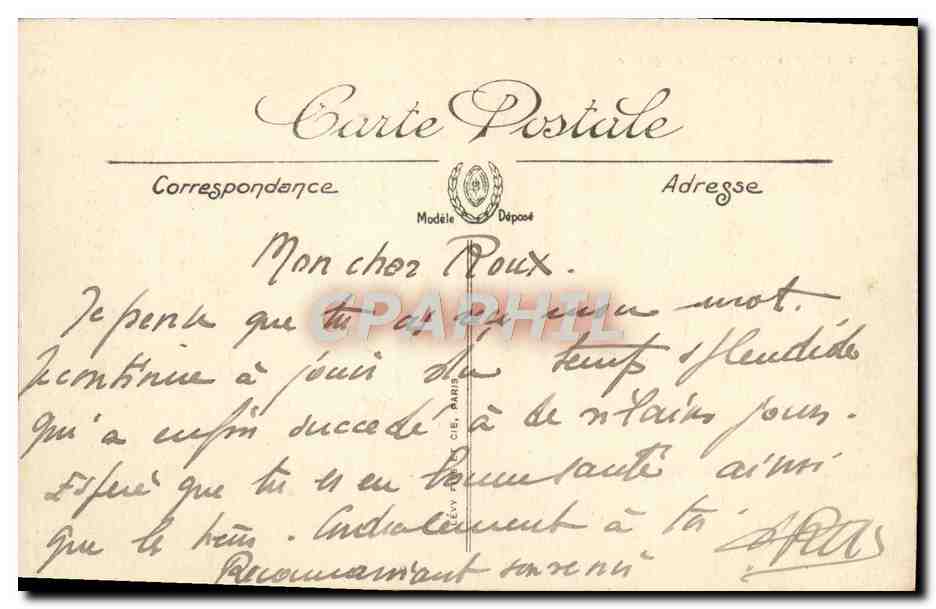 Carte Postale
Correspondance
Adresse
Modèle Déposé
Mon cher Roux.
Je pense que tu as reçu mon mot.
Je continue à jouir du temps splendide
qui a enfin succédé à de vilains jours.
Espère que tu es en bonne santé ainsi
que les tiens. Cordialement à toi
souvenir
LÉVY FILS ET CIE, PARIS
CPAPHIL